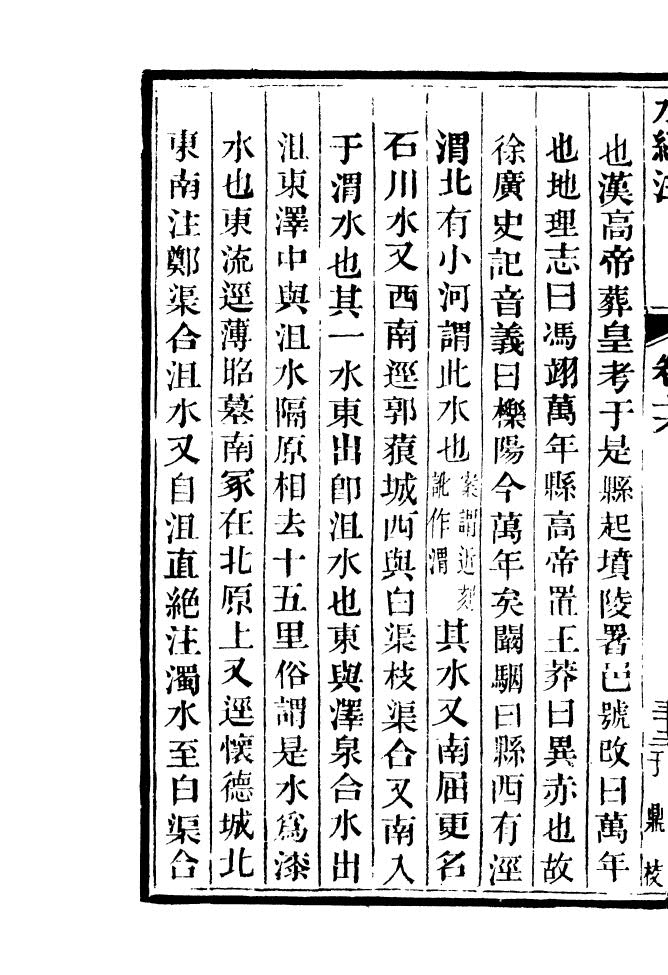 水經注 卷十六 三十三 丁鼎校
也漢高帝葬皇考于是縣起墳陵署邑號改曰萬年
也地理志曰馮翊萬年縣高帝置王莽曰異赤也故
徐廣史記音義曰櫟陽今萬年矣闞駰曰縣西有涇
渭北有小河謂此水也案謂近刻訛作渭其水又南屈更名
石川水又西南逕郭䔥城西與白渠枝渠合又南入
于渭水也其一水東出卽沮水也東與澤泉合水出
沮東澤中與沮水隔原相去十五里俗謂是水爲漆
水也東流逕薄昭墓南冢在北原上又逕懷德城北
東南注鄭渠合沮水又自沮直絕注濁水至白渠合